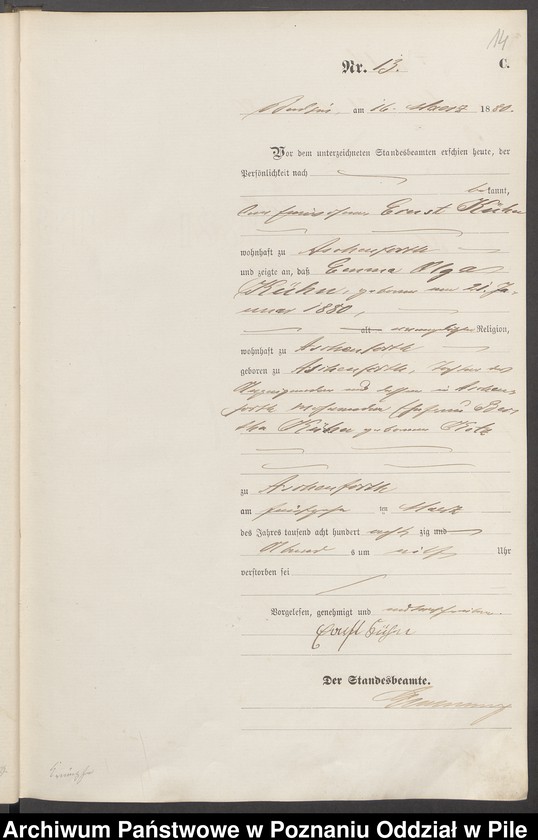 14
Nr. 13. C.
Budsin, am 16. Maerz 1880.
Vor dem unterzeichneten Standesbeamten erschien heute, der
Persönlichkeit nach
bekannt,
Ernst Kühn
wohnhaft zu Aschenforth
und zeigte an, daß Emma Olga
Kühn, geboren am 21. Ja-
nuar 1880,
alt evangelischer Religion,
wohnhaft zu Aschenforth
geboren zu Aschenforth, Tochter des
Anzeigenden und dessen in Aschen-
forth Ehefrau Ber-
tha Kühn geborenen
zu Aschenforth
am fünfzehn ten Maerz
des Jahres tausend acht hundert acht zig und
Abends um Uhr
verstorben sei
Vorgelesen, genehmigt und unterschrieben.
Ernst Kühn
Der Standesbeamte.
Archiwum Państwowe w Poznaniu Oddział w Pile